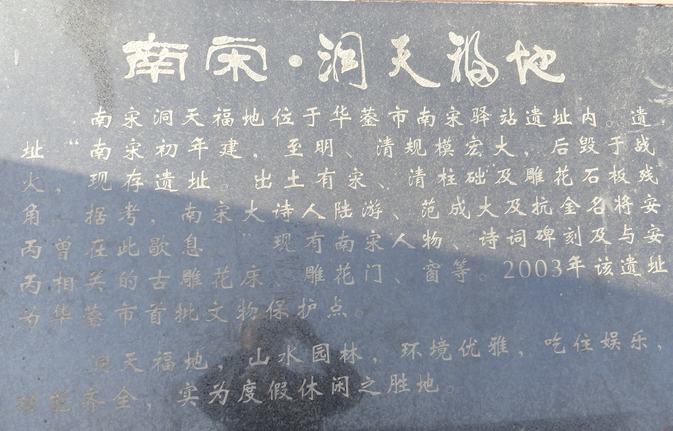 南宋·洞天福地
南宋洞天福地位于华蓥市南宋驿站遗址内。遗
址“南宋初年建，至明、清规模宏大，后毁于战
火，现存遗址。出土有宋、清柱础及雕花石板残
角。据考，南宋大诗人陆游、范成大及抗金名将安
丙曾在此歇息。”现有南宋人物、诗词碑刻及与安
丙相关的古雕花床、雕花门、窗等。2003年该遗址
为华蓥市首批文物保护点。
洞天福地，山水园林，环境优雅，吃住娱乐，
功能齐全，实为度假休闲之胜地。